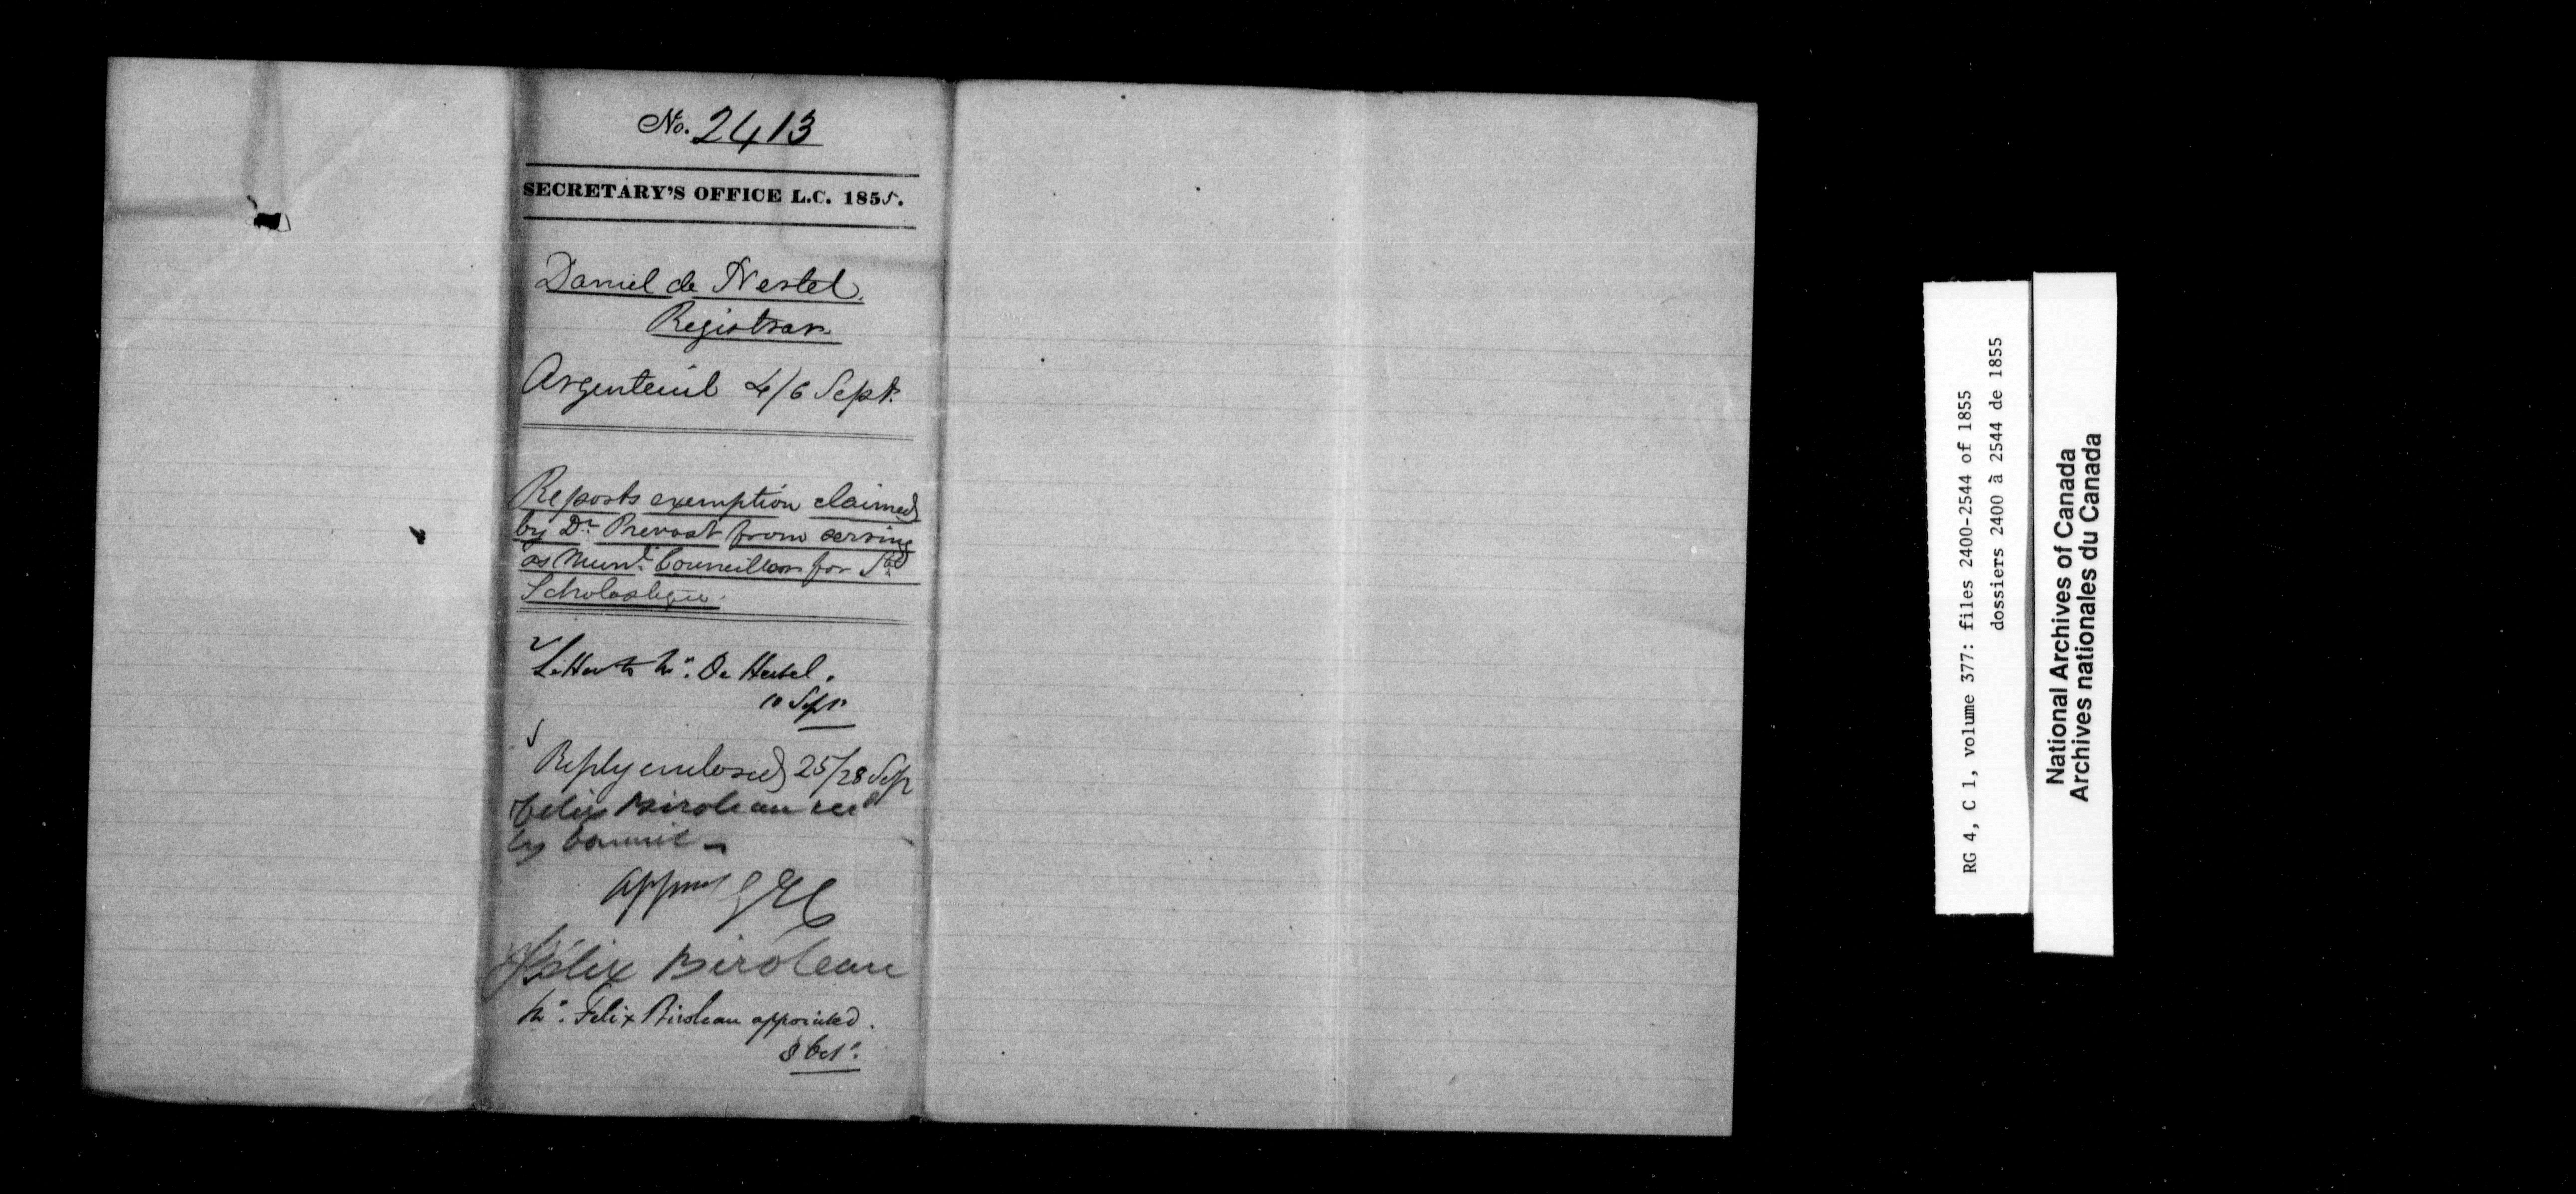 No. 2413
SECRETARY'S OFFICE L.C. 1855.
Daniel de Hertel.
Registrar
Argenteuil 4/6 Sept.
Reports exemption claimed
by Dr. Prevost from serving
as Munl. Councillor for Ste
Scholastique.
Letter to Mr. De Hertel.
10 Sept.
Reply enclosed 25/28 Sep
Felix Biroleau recd
by Council
Appd GEC
Félix Biroleau
Mr. Felix Biroleau appointed.
8 Oct.
RG 4, C 1, volume 377: files 2400-2544 of 1855
dossiers 2400 à 2544 de 1855
National Archives of Canada
Archives nationales du Canada